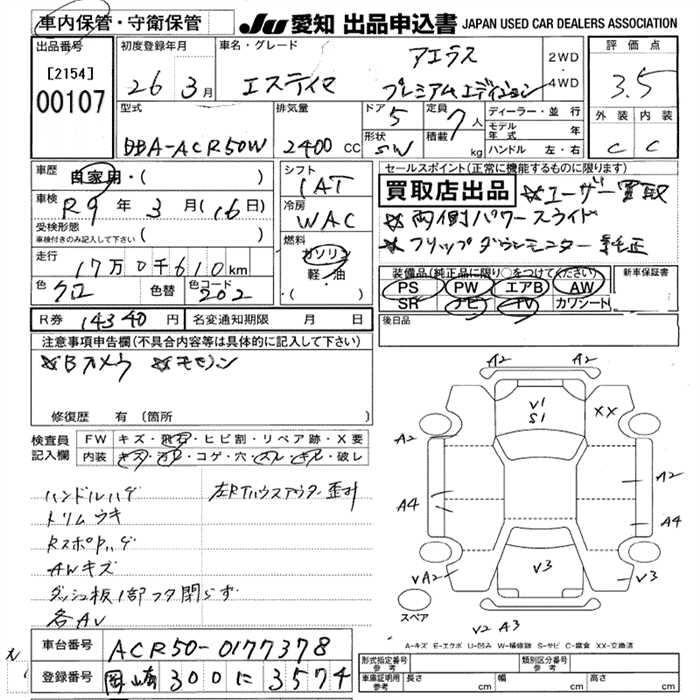 車内保管・守衛保管
JU 愛知 出品申込書 JAPAN USED CAR DEALERS ASSOCIATION
出品番号
[2154]
00107
初度登録年月
26 3月
車名・グレード
エスティマ
アエラス
プレミアムエディション
2WD
・
4WD
評価点
3.5
外装 内装
C C
型式
DBA-ACR50W
排気量
2400 CC
ドア
5
形状
SW
定員
7人
積載
kg
ディーラー・並行
モデル年式 年
ハンドル 左・右
車歴
自家用・( )
車検
R9年 3月(16日)
受検形態
車検付きのみ記入して下さい ( )
走行
17万0千610km
色
クロ
色替
色コード
202
シフト
IAT
冷房
WAC
燃料
ガソリン
軽・油
・( )
セールスポイント(正常に機能するものに限ります)
買取店出品 ☆ユーザー買取
☆両側パワースライド
☆フリップダウンモニター 純正
装備品(純正品に限り○をつけてください)
PS PW エアB AW
SR ナビ TV カワシート
新車保証書
後日品
R券 14340円 名変通知期限 月 日
注意事項申告欄(不具合内容等は具体的に記入して下さい)
☆Bカメラ
修復歴 有 (箇所
検査員記入欄
FW キズ・飛石・ヒビ割・リペア跡・X要
内装 キズ・ヨゴレ・コゲ・穴・スレ・キレ・破レ
ハンドルハゲ
トリムウキ
AWキズ
ダッシュ板1部フタ閉らず
各AV
左Rタイヤハウスアウター歪み
A2 A2
V1
S1
XX
A2
A4
A2
A4
VA2
V3
V3
V2 A3
スペア
A-キズ E-エクボ U-凹み W-補修跡 S-サビ C-腐食 XX-交換済
車台番号 ACR50-0177378
登録番号 岡崎 300 に 3574
形式指定番号
参考
類別区分番号
参考
車庫証明用
参考
長さ cm
幅 cm
高さ cm